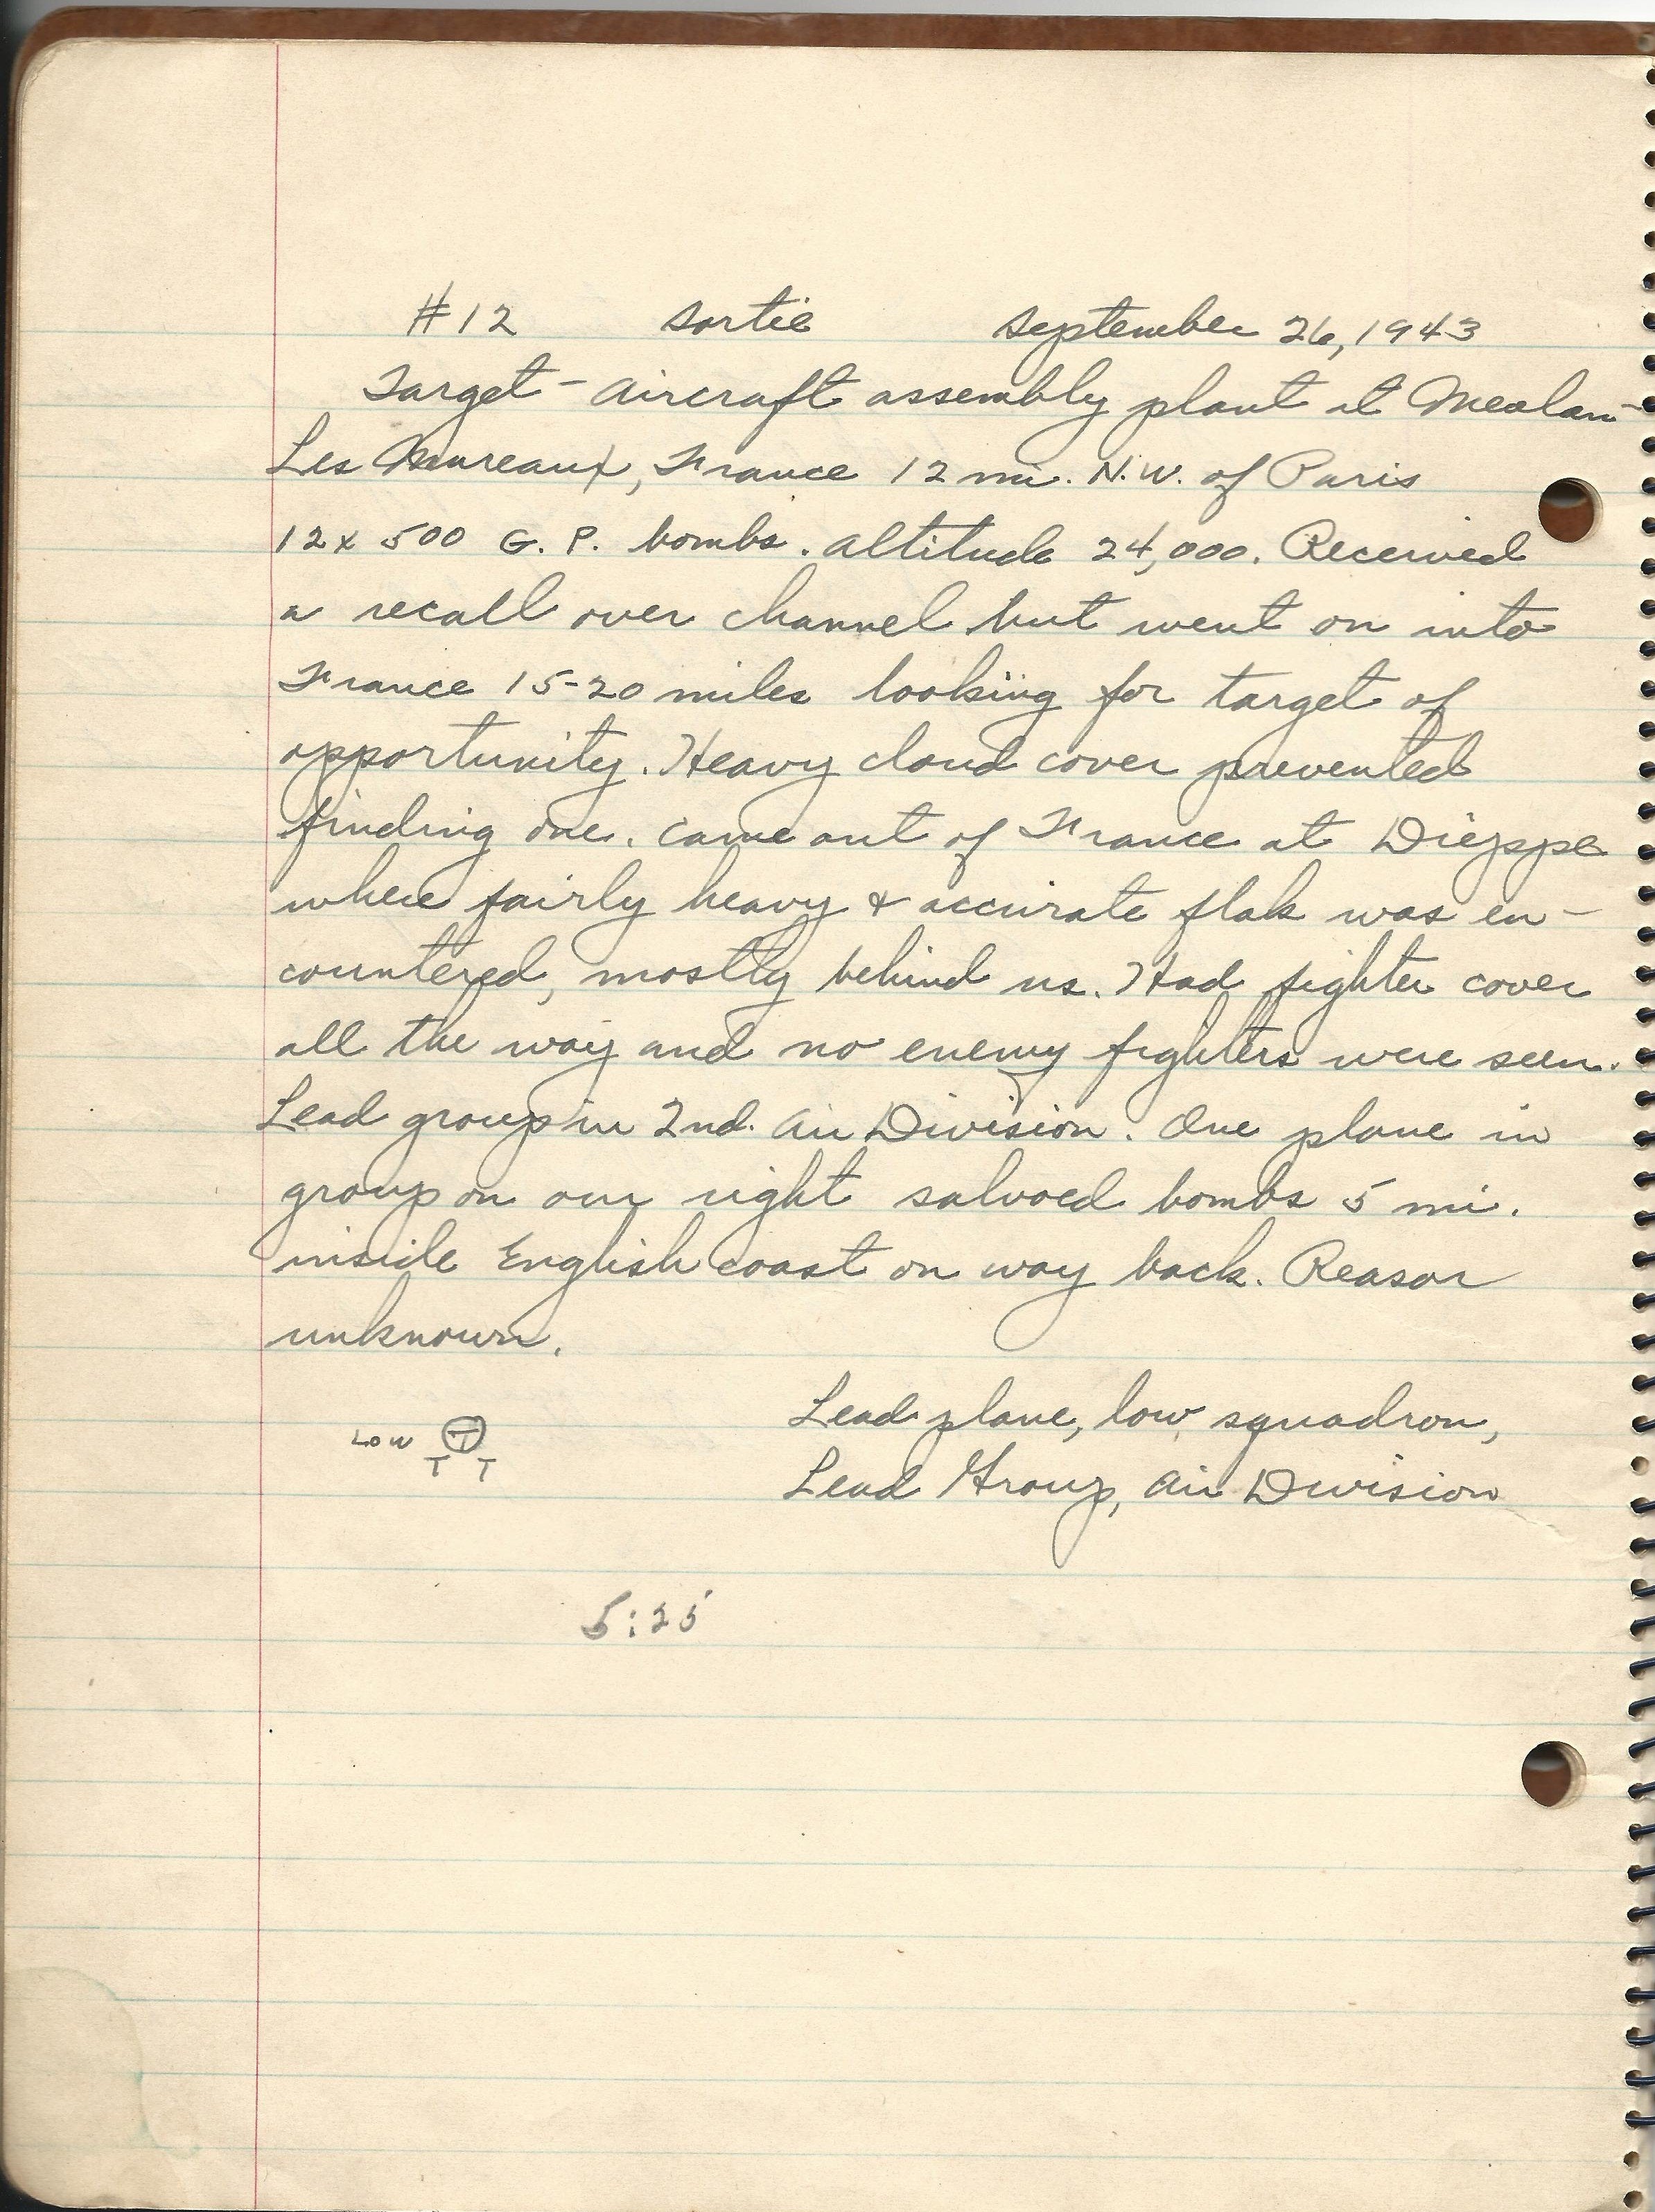 #12 sortie September 26, 1943
Target - aircraft assembly plant at Meulan-
Les Mureaux, France 12 mi. N.W. of Paris
12 x 500 G.P. bombs. Altitude 24,000. Received
a recall over channel but went on into
France 15-20 miles looking for target of
opportunity. Heavy cloud cover prevented
finding one. Came out of France at Dieppe
where fairly heavy & accurate flak was en-
countered, mostly behind us. Had fighter cover
all the way and no enemy fighters were seen.
Lead group in 2nd. Air Division. One plane in
group on our right salvoed bombs 5 mi.
inside English coast on way back. Reason
unknown.
Lead plane, low squadron,
LOW T
T T
Lead Group, Air Division
5:25